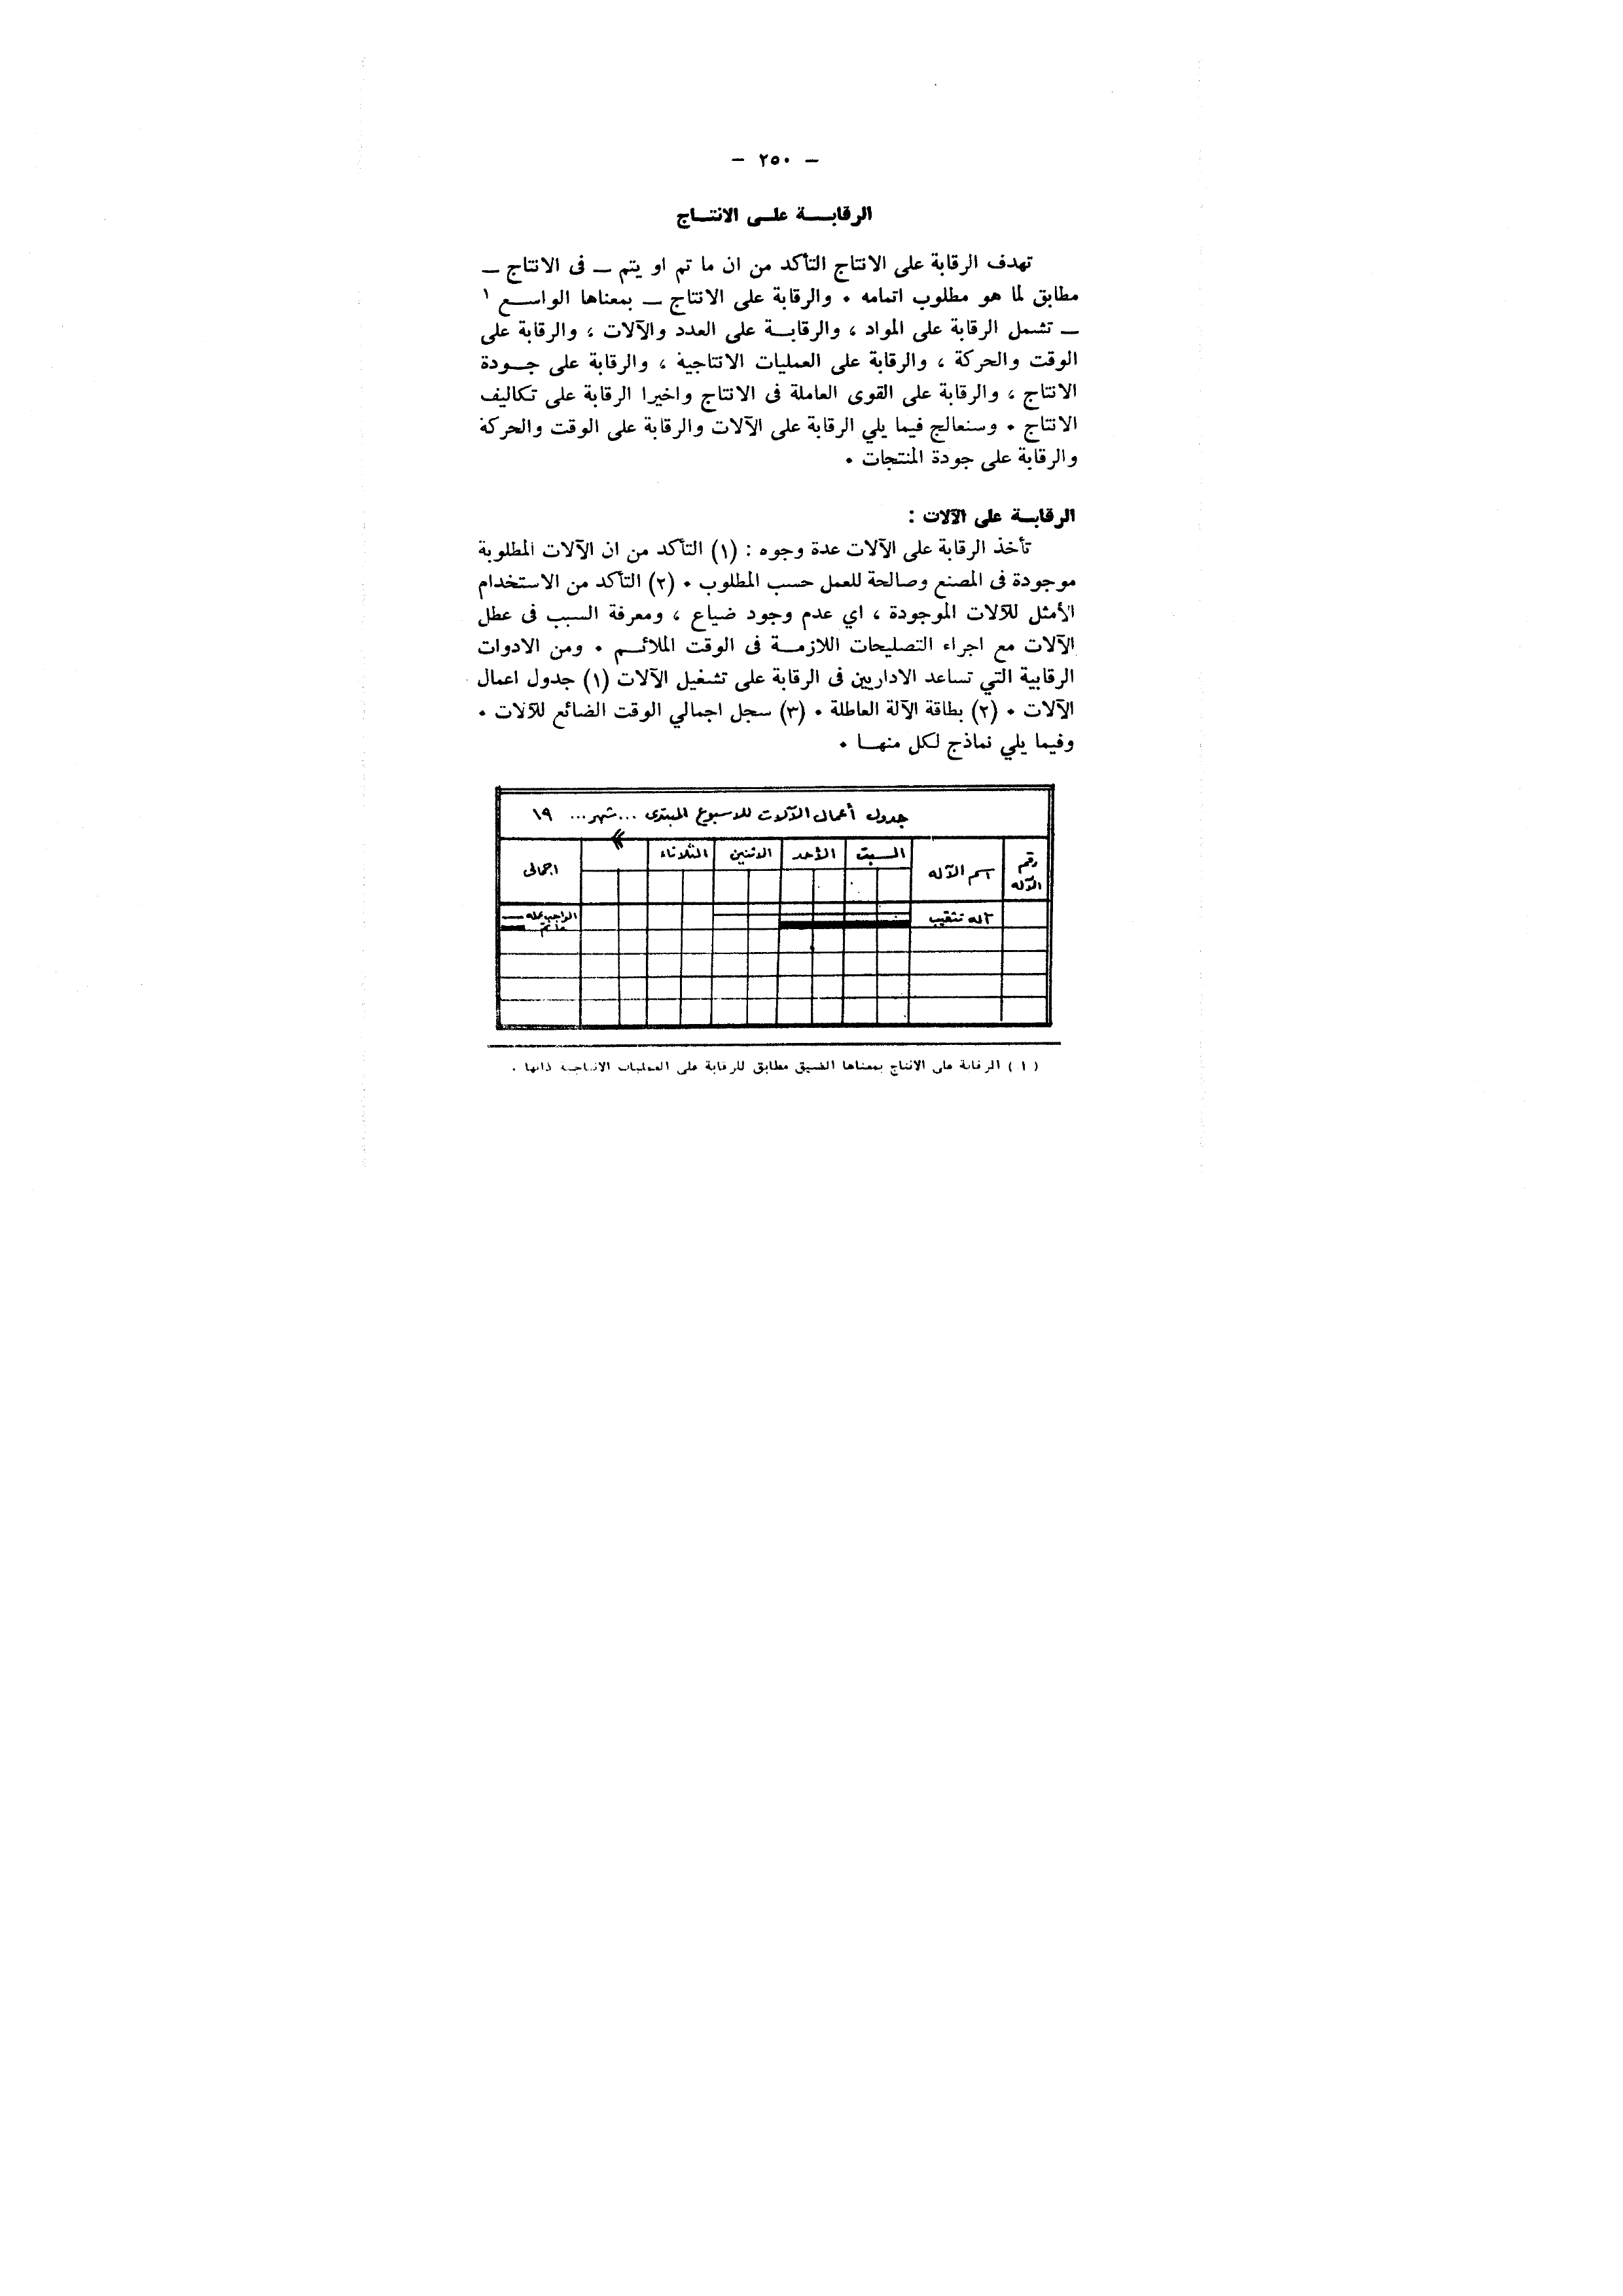 – ٢٥٠ –
الرقابة على الانتاج
تهدف الرقابة على الانتاج التأكد من ان ما تم او يتم – فى الانتاج –
مطابق لما هو مطلوب اتمامه . والرقابة على الانتاج – بمعناها الواسع ١
– تشمل الرقابة على المواد ، والرقابة على العدد والآلات ، والرقابة على
الوقت والحركة ، والرقابة على العمليات الانتاجية ، والرقابة على جودة
الانتاج ، والرقابة على القوى العاملة فى الانتاج واخيرا الرقابة على تكاليف
الانتاج . وسنعالج فيما يلي الرقابة على الآلات والرقابة على الوقت والحركة
والرقابة على جودة المنتجات .
الرقابة على الآلات :
تأخذ الرقابة على الآلات عدة وجوه : (١) التأكد من ان الآلات المطلوبة
موجودة فى المصنع وصالحة للعمل حسب المطلوب . (٢) التأكد من الاستخدام
الأمثل للآلات الموجودة ، اي عدم وجود ضياع ، ومعرفة السبب فى عطل
الآلات مع اجراء التصليحات اللازمة فى الوقت الملائم . ومن الادوات
الرقابية التي تساعد الاداريين فى الرقابة على تشغيل الآلات (١) جدول اعمال
الآلات . (٢) بطاقة الآلة العاطلة . (٣) سجل اجمالي الوقت الضائع للآلات .
وفيما يلي نماذج لكل منها .
جدول أعمال الآلات للاسبوع المبتدى ... شهر ... ١٩
رقم الآله اسم الآله السبت الأحد الاثنين الثلاثاء اجمالى
آله تثقيب الواجب عمله
ما تم
(١) الرقابة على الانتاج بمعناها الضيق مطابق للرقابة على العمليات الانتاجية ذاتها .